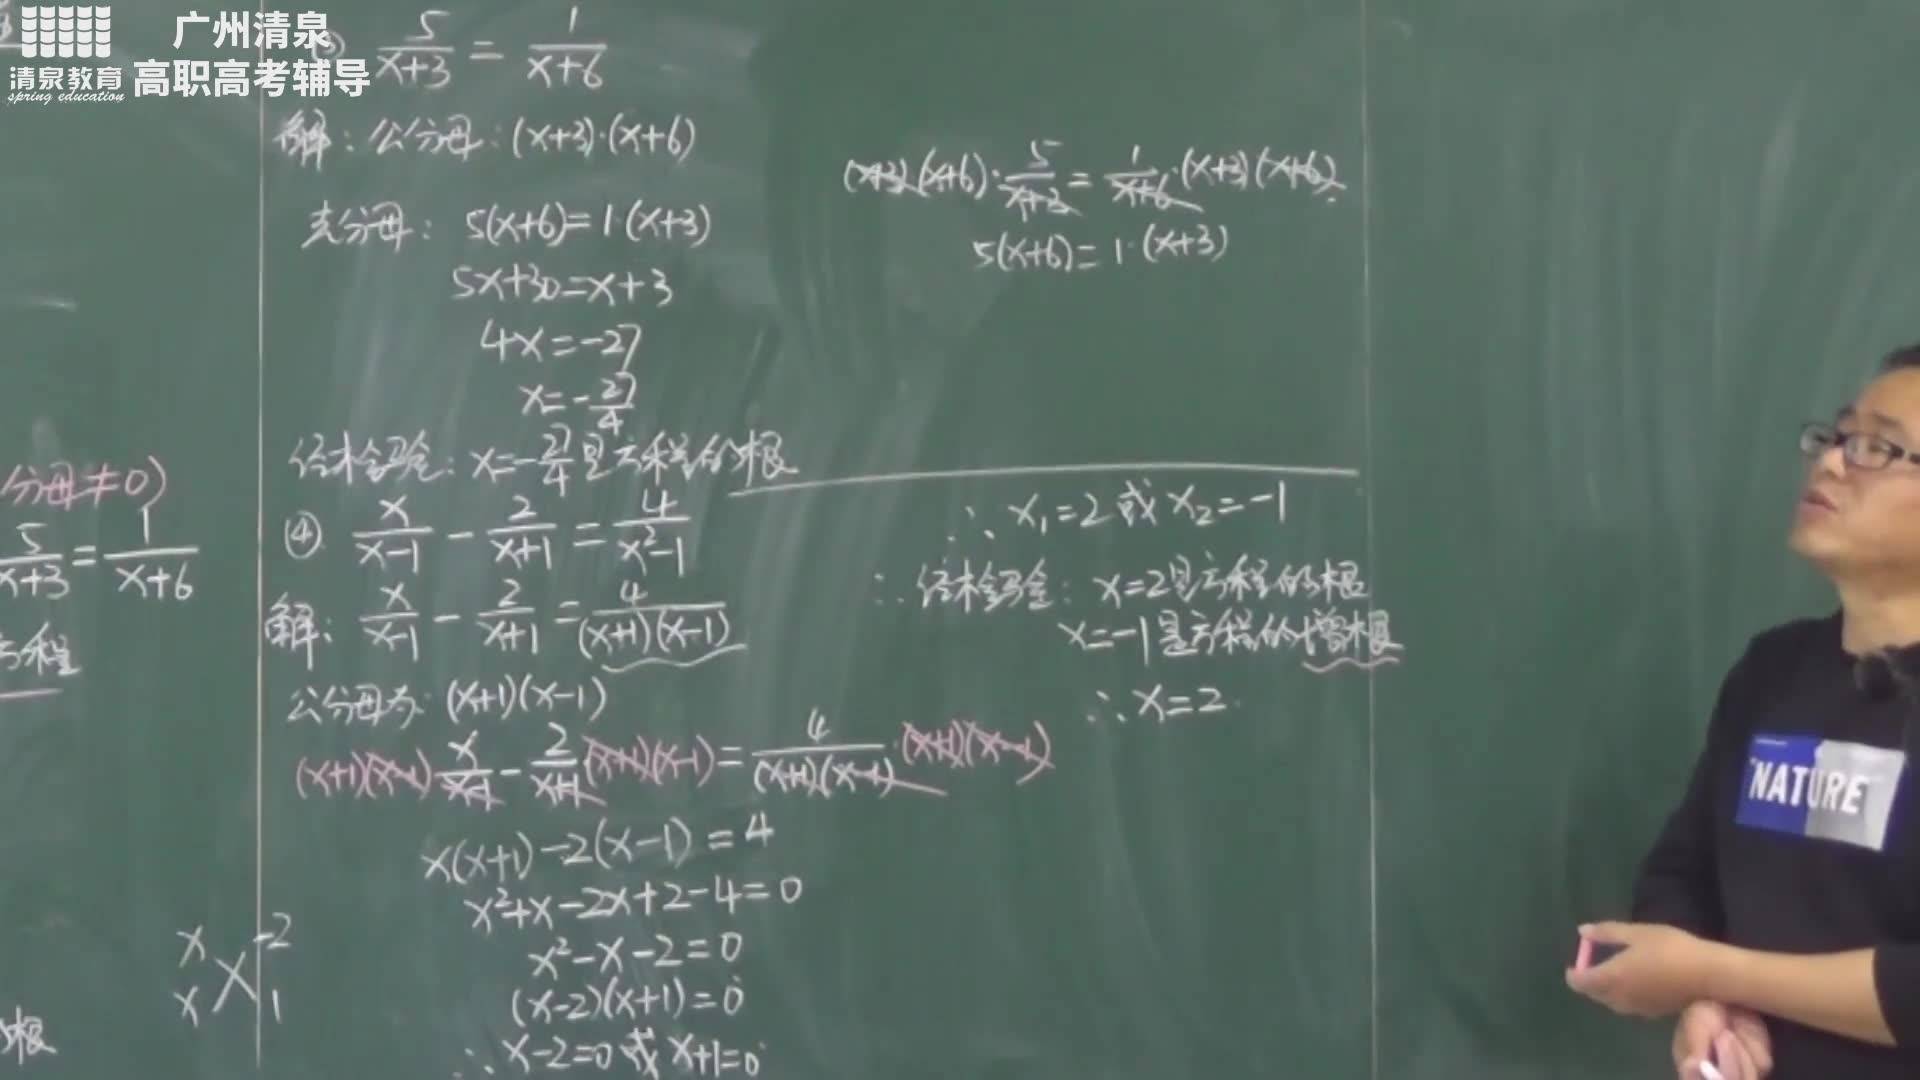 广州清泉
高职高考辅导
清泉教育
spring education
5/(x+3) = 1/(x+6)
解：公分母：(x+3)·(x+6)
去分母：5(x+6)=1·(x+3)
5x+30=x+3
4x=-27
x=-27/4
经检验：x=-27/4是方程的根
(x+3)(x+6)·5/(x+3)=1/(x+6)·(x+3)(x+6)
5(x+6)=1·(x+3)
分母≠0)
5/(x+3)=1/(x+6)
方程
根
④ x/(x-1) - 2/(x+1) = 4/(x²-1)
解：x/(x-1) - 2/(x+1) = 4/((x+1)(x-1))
公分母为：(x+1)(x-1)
(x+1)(x-1)·x/(x-1) - 2/(x+1)·(x+1)(x-1) = 4/((x+1)(x-1))·(x+1)(x-1)
x(x+1)-2(x-1)=4
x²+x-2x+2-4=0
x²-x-2=0
(x-2)(x+1)=0
∴x-2=0或x+1=0
x -2
x 1
∴x₁=2或x₂=-1
∴经检验：x=2是方程的根
x=-1是方程的增根
∴x=2
NATURE